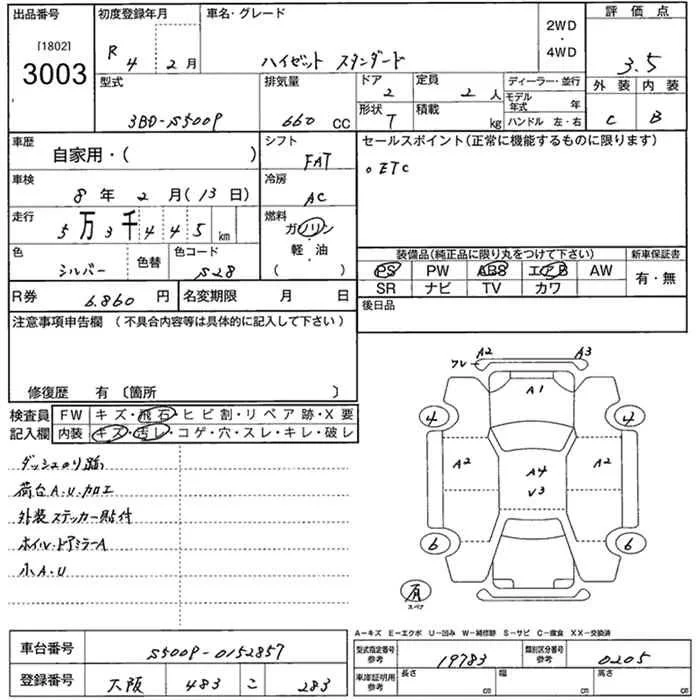 出品番号 初度登録年月 車名・グレード 2WD・4WD 評価点
[1802] 3003 R 4 2月 ハイゼット スタンダード 3.5
型式 排気量 ドア 2 定員 2人 ディーラー・並行 外装 内装
3BD-S500P 660 CC 形状 T 積載 kg モデル年式 年 C B
ハンドル 左・右
車歴 シフト セールスポイント(正常に機能するものに限ります)
自家用・( ) FAT 。ETC
車検 冷房
8年 2月(13日) AC
走行 燃料
5万3千445km ガソリン
軽・油
( )
色 シルバー 色替 色コード S28
装備品(純正品に限り丸をつけて下さい) 新車保証書
PS PW ABS エアB AW 有・無
SR ナビ TV カワ
R券 6.860円 名変期限 月 日 後日品
注意事項申告欄 (不具合内容等は具体的に記入して下さい)
修復歴 有〔箇所 〕
検査員 FW キズ・飛石・ヒビ割・リペア跡・X要
記入欄 内装 キズ・汚レ・コゲ・穴・スレ・キレ・破レ
ダッシュのり跡
荷台A.U.加工
外装ステッカー貼付
ホイル・ドアミラーA
小A.U
A2 A3
ワレ
A1
4 4
A2 A4 A2
V3
6 6
有
スペア
A-キズ E-エクボ U-凹み W-補修跡 S-サビ C-腐食 XX-交換済
車台番号 S500P-0152857
型式指定番号 参考 19783 類別区分番号 参考 0205
登録番号 大阪 483 こ 283
車庫証明用 参考 長さ cm 幅 cm 高さ cm